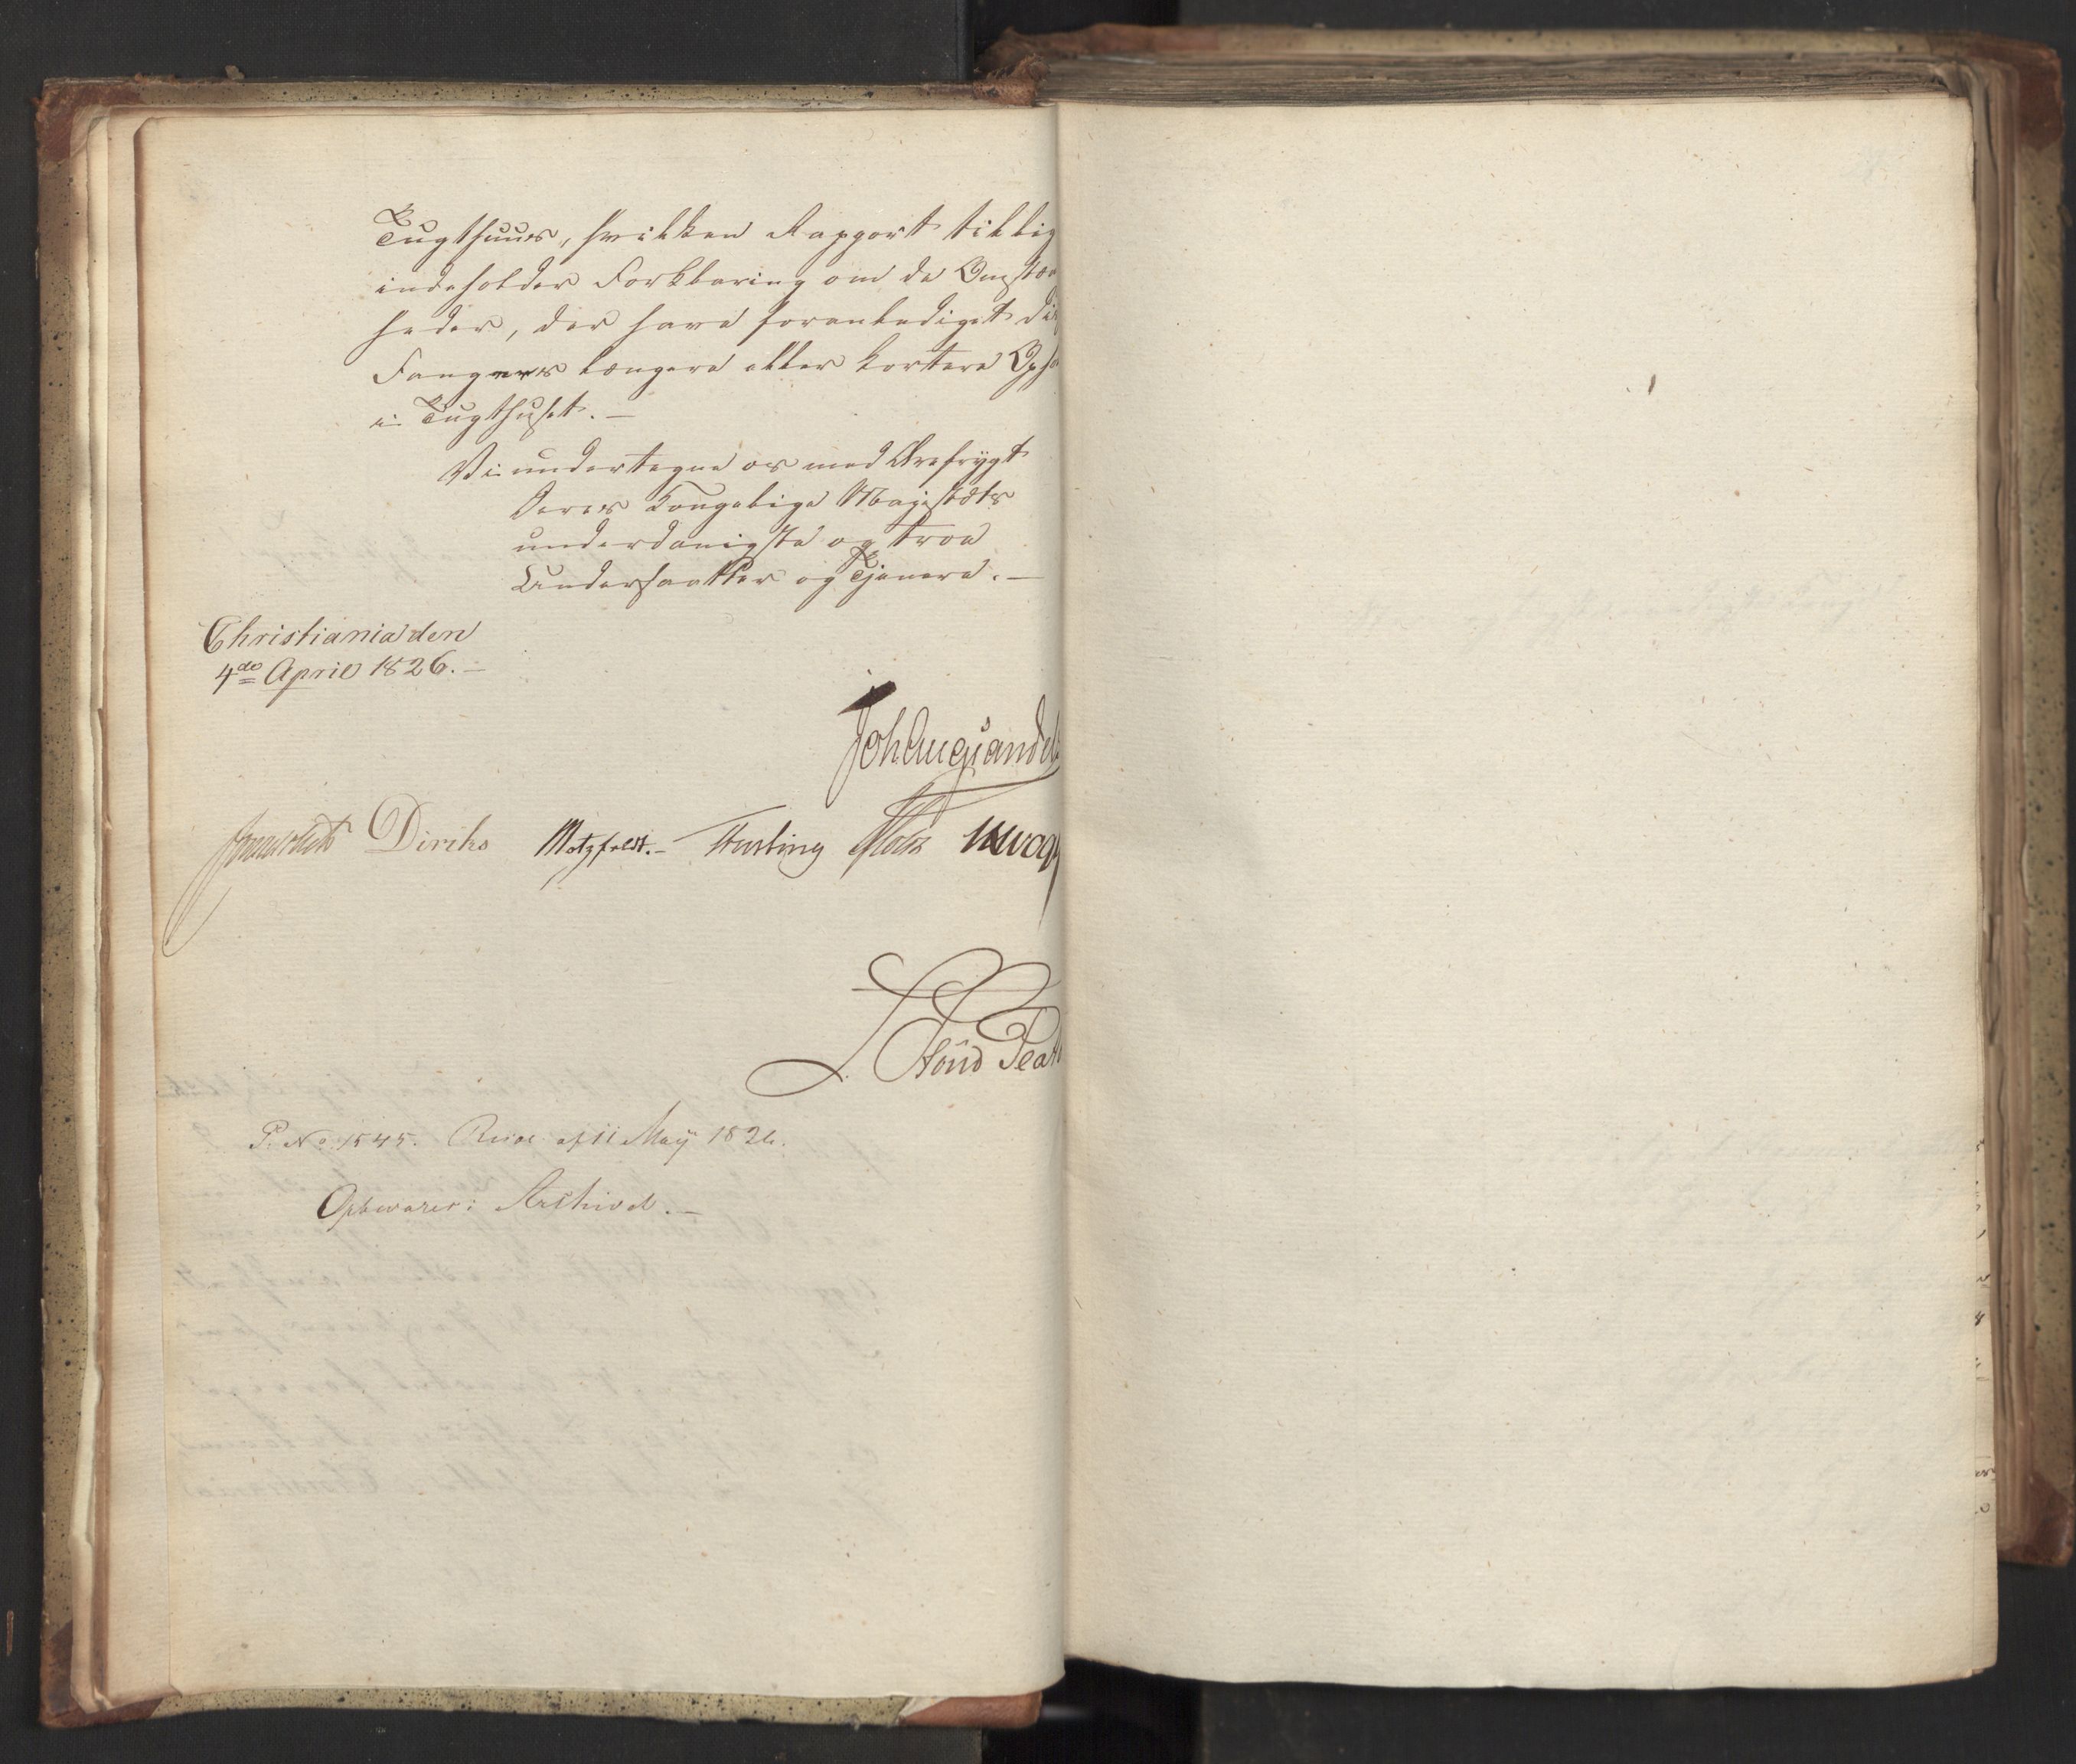 Tugthuus, hvilken Rapport tillig
indeholder Forklaring om de Omstæn
heder, der have foranlediget dis
Fangers længere eller kortere Opho
i Tugthuset. —
Vi undertegne os med Ærefrygt
Deres Kongelige Majestæts
underdanigste og troe
Undersaatter og Tjenere. —
Christiania den
4de April 1826. —
Joh. Aug. Sandel
Diriks Motzfeldt. — Fasting
P. No 1545. af 11 May 1826.
Opbevares i Archivet. —